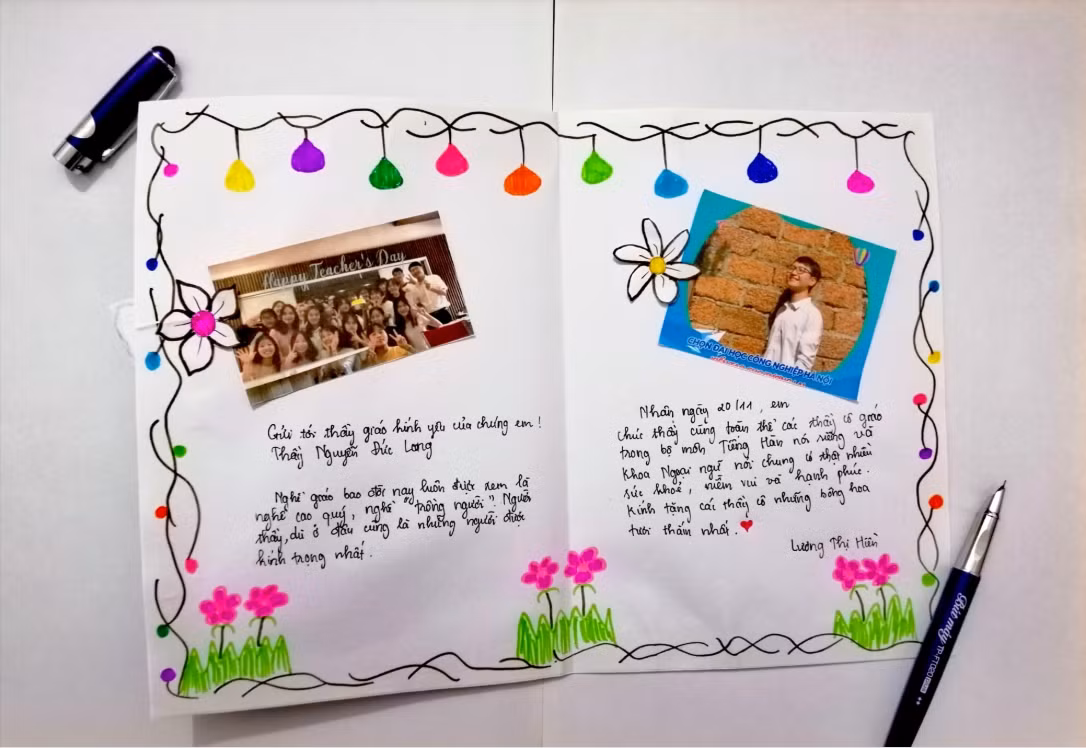 Happy Teacher's Day
Gửi tới thầy giáo kính yêu của chúng em!
Thầy Nguyễn Đức Long
Nghề giáo bao đời nay luôn được xem là
nghề cao quý, nghề "trồng người". Người
thầy, dù ở đâu cũng là những người được
kính trọng nhất.
CHỌN ĐẠI HỌC CÔNG NGHIỆP HÀ NỘI
Nhân ngày 20/11, em
chúc thầy cùng toàn thể các thầy cô giáo
trong bộ môn Tiếng Hàn nói riêng và
Khoa Ngoại ngữ nói chung có thật nhiều
sức khoẻ, niềm vui và hạnh phúc.
Kính tặng các thầy cô những bông hoa
tươi thắm nhất.
Lương Thị Hiền
Bút máy TP-FT020